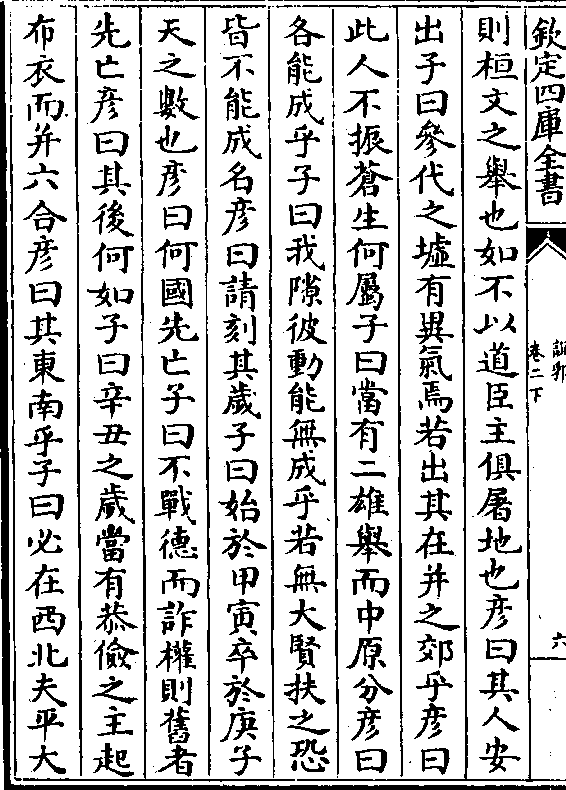 欽定四庫全書
說郛
卷二下
六
則桓文之舉也如不以道臣主俱屠地也彥曰其人安
出子曰參代之墟有異氣焉若出其在并之郊乎彥曰
此人不振蒼生何屬子曰當有二雄舉而中原分彥曰
各能成乎子曰我隙彼動能無成乎若無大賢扶之恐
皆不能成名彥曰請刻其歲子曰始於甲寅卒於庚子
天之數也彥曰何國先亡子曰不戰德而詐權則舊者
先亡彥曰其後何如子曰辛丑之歲當有恭儉之主起
布衣而并六合彥曰其東南乎子曰必在西北夫平大